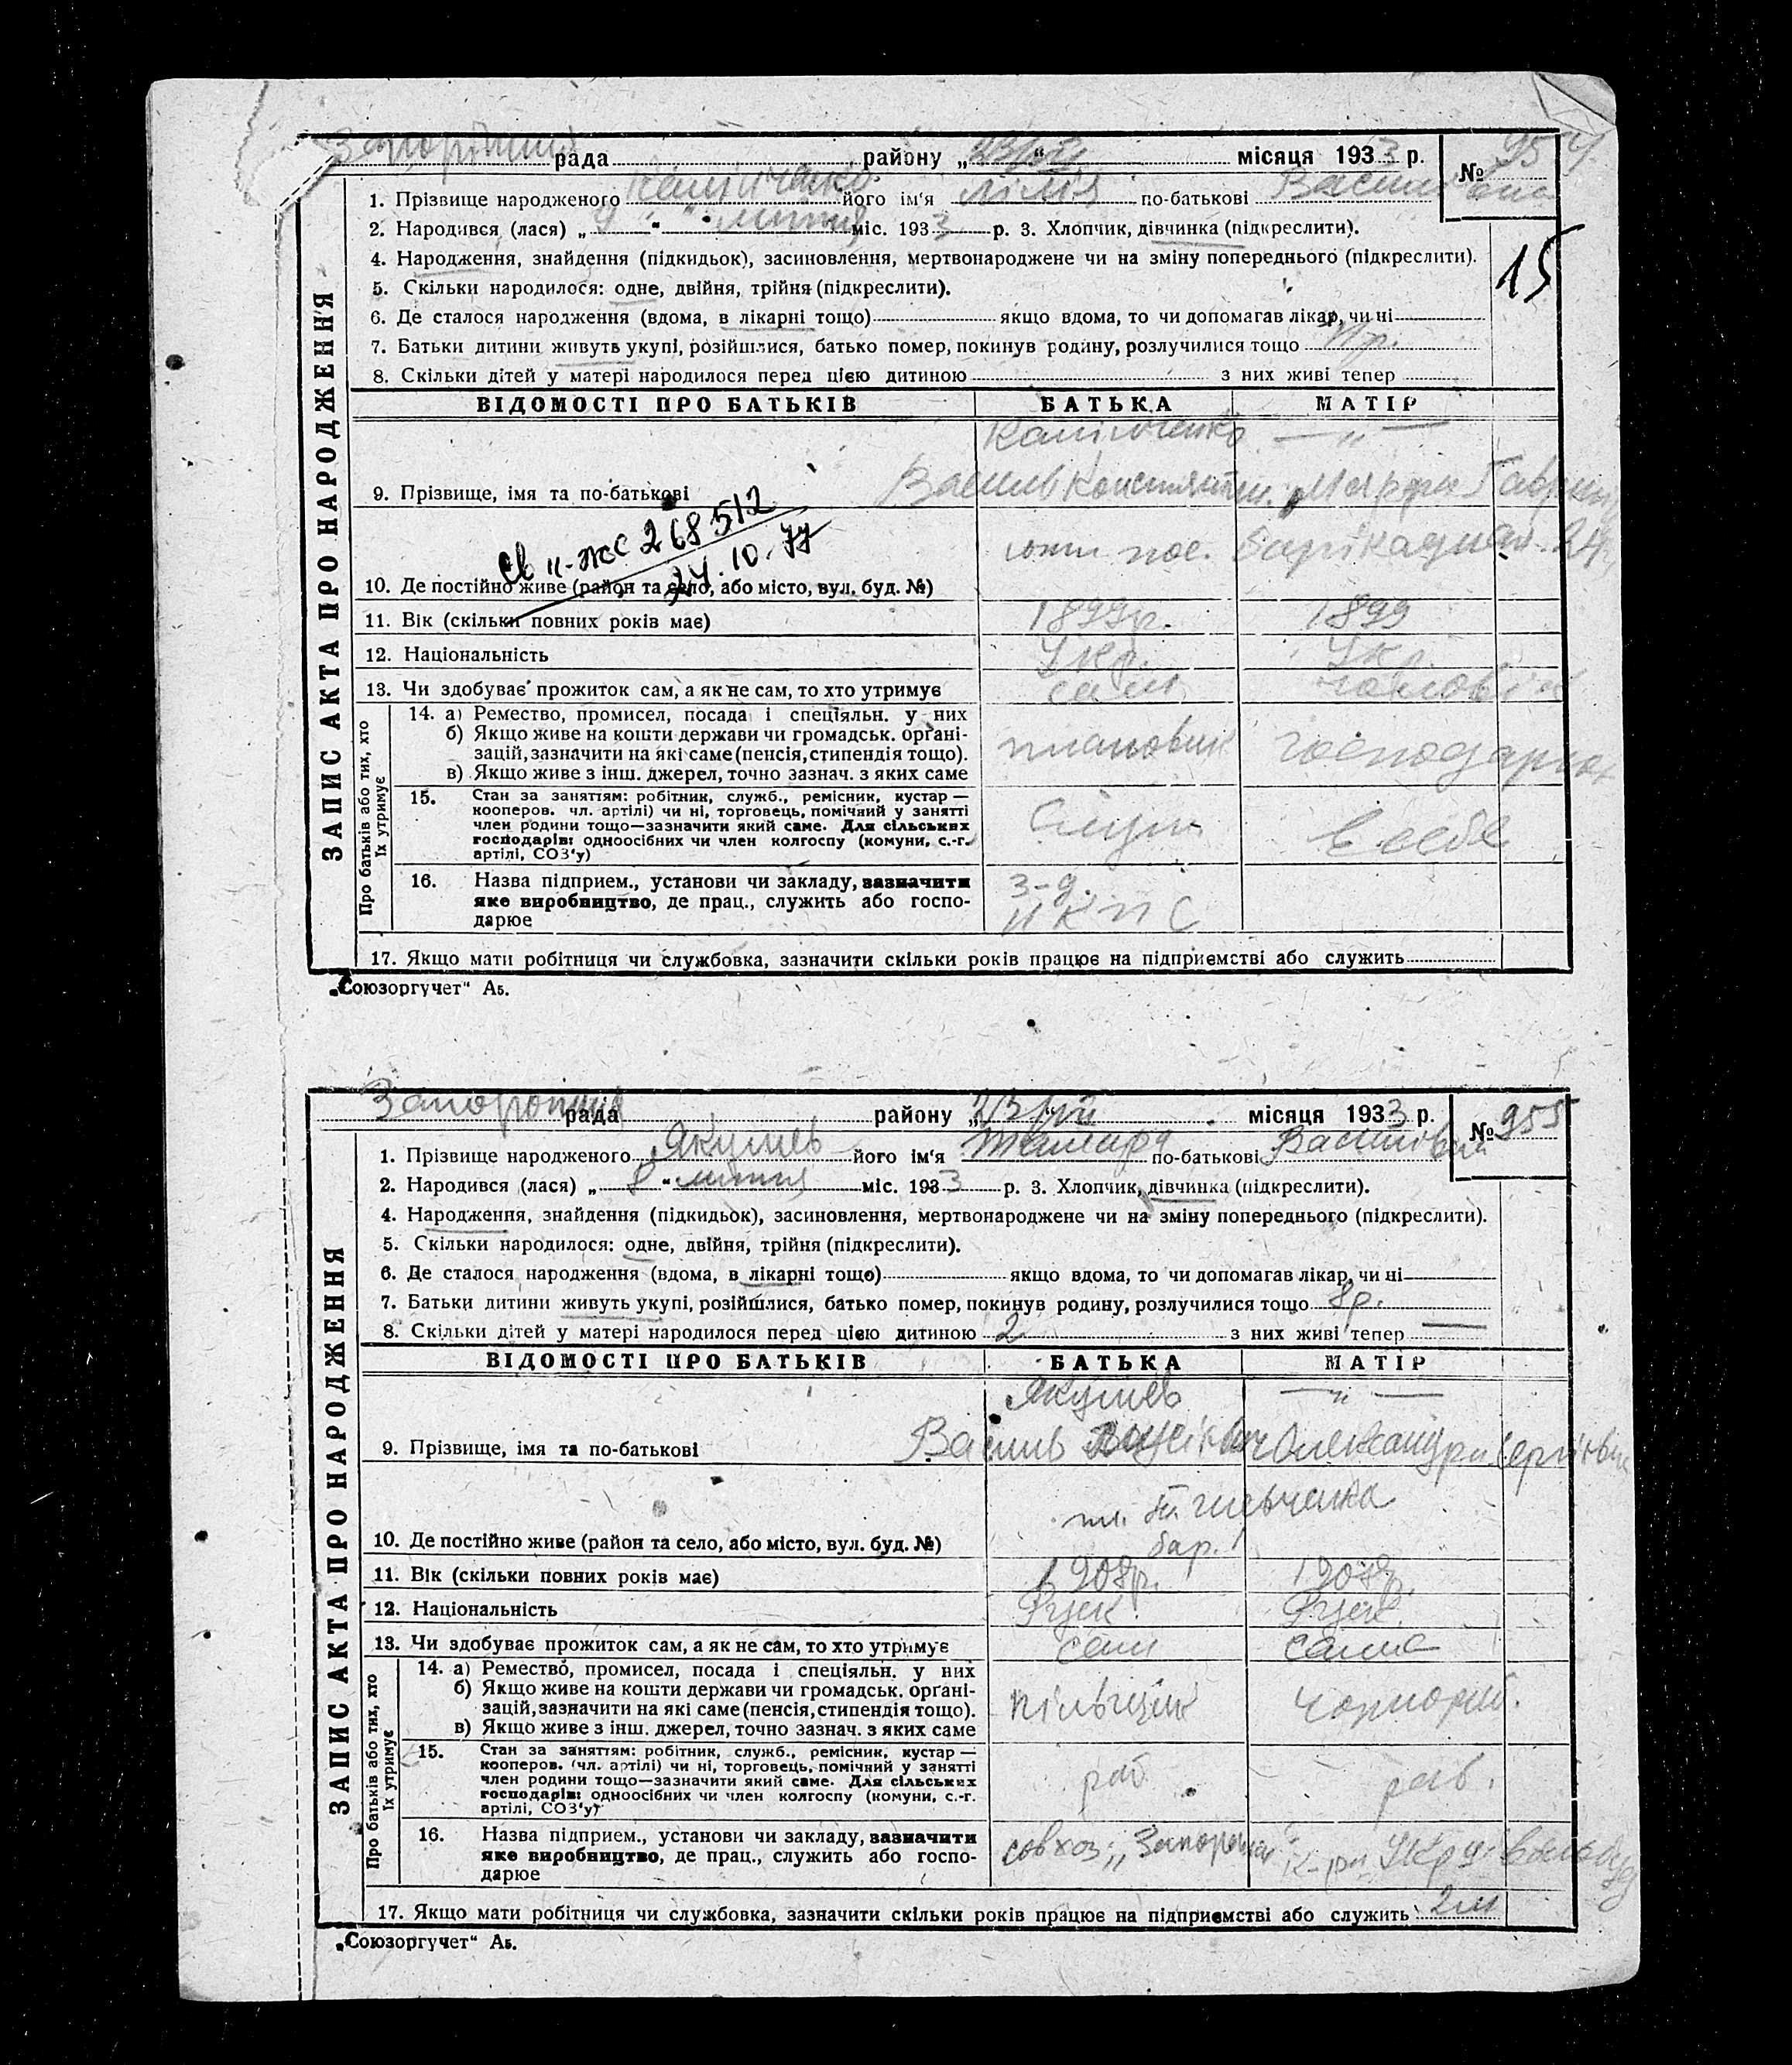 рада району „23/VII“ місяця 1933 р. № 954
1. Прізвище народженого його ім'я Лілія по-батькові
2. Народився (лася) „ “ липня міс. 1933 р. 3. Хлопчик, дівчинка (підкреслити).
15
4. Народження, знайдення (підкидьок), засиновлення, мертвонароджене чи на зміну попереднього (підкреслити).
5. Скільки народилося: одне, двійня, трійня (підкреслити).
6. Де сталося народження (вдома, в лікарні тощо) якщо вдома, то чи допомагав лікар, чи ні
7. Батьки дитини живуть укупі, розійшлися, батько помер, покинув родину, розлучилися тощо
8. Скільки дітей у матері народилося перед цією дитиною з них живі тепер
ЗАПИС АКТА ПРО НАРОДЖЕННЯ
ВІДОМОСТІ ПРО БАТЬКІВ БАТЬКА МАТІР
— „ —
9. Прізвище, імя та по-батькові Василь Констянтин. Марфа Гаврил
268512
24.10.77
10. Де постійно живе (район та село, або місто, вул. буд. №) пос. Барікадная
11. Вік (скільки повних років має) 1899р. 1899
12. Національність Укр. Укр.
13. Чи здобуває прожиток сам, а як не сам, то хто утримує сам чоловік
Про батьків або тих, хто їх утримує
14. а) Ремество, промисел, посада і спеціяльн. у них
б) Якщо живе на кошти держави чи громадськ. органі-
зацій, зазначити на які саме (пенсія, стипендія тощо). плановик господарка
в) Якщо живе з інш. джерел, точно зазнач. з яких саме
15. Стан за заняттям: робітник, служб., ремісник, кустар —
кооперов. чл. артілі) чи ні, торговець, помічний у занятті
член родини тощо—зазначити який саме. Для сільських
господарів: одноосібних чи член колгоспу (комуни, с.-г.
артілі, СОЗ'у)
служ в себе
16. Назва підприєм., установи чи закладу, зазначити з-д.
яке виробництво, де прац., служить або госпо-
дарює НКПС
17. Якщо мати робітниця чи службовка, зазначити скільки років працює на підприємстві або служить
„Союзоргучет“ А5.
рада району „23/VII“ місяця 1933 р. № 955
1. Прізвище народженого Якушев його ім'я Тамара по-батькові Василівна
2. Народився (лася) „8“ липня міс. 1933 р. 3. Хлопчик, дівчинка (підкреслити).
4. Народження, знайдення (підкидьок), засиновлення, мертвонароджене чи на зміну попереднього (підкреслити).
5. Скільки народилося: одне, двійня, трійня (підкреслити).
6. Де сталося народження (вдома, в лікарні тощо) якщо вдома, то чи допомагав лікар, чи ні
7. Батьки дитини живуть укупі, розійшлися, батько помер, покинув родину, розлучилися тощо 8р.
8. Скільки дітей у матері народилося перед цією дитиною 2 з них живі тепер —
ЗАПИС АКТА ПРО НАРОДЖЕННЯ
ВІДОМОСТІ ПРО БАТЬКІВ БАТЬКА МАТІР
Якушев — „ —
9. Прізвище, імя та по-батькові Василь Олександра Сергіївна
Шевченка
10. Де постійно живе (район та село, або місто, вул. буд. №) бар.
11. Вік (скільки повних років має) 1908р. 1908р.
12. Національність Руск. Руск.
13. Чи здобуває прожиток сам, а як не сам, то хто утримує сам сама
Про батьків або тих, хто їх утримує
14. а) Ремество, промисел, посада і спеціяльн. у них
б) Якщо живе на кошти держави чи громадськ. органі-
зацій, зазначити на які саме (пенсія, стипендія тощо). чорнороб.
в) Якщо живе з інш. джерел, точно зазнач. з яких саме
15. Стан за заняттям: робітник, служб., ремісник, кустар —
кооперов. (чл. артілі) чи ні, торговець, помічний у занятті
член родини тощо—зазначити який саме. Для сільських
господарів: одноосібних чи член колгоспу (комуни, с.-г.
артілі, СОЗ'у)
роб роб.
16. Назва підприєм., установи чи закладу, зазначити
яке виробництво, де прац., служить або госпо-
дарює
совхоз
17. Якщо мати робітниця чи службовка, зазначити скільки років працює на підприємстві або служить 2м
„Союзоргучет“ А5.